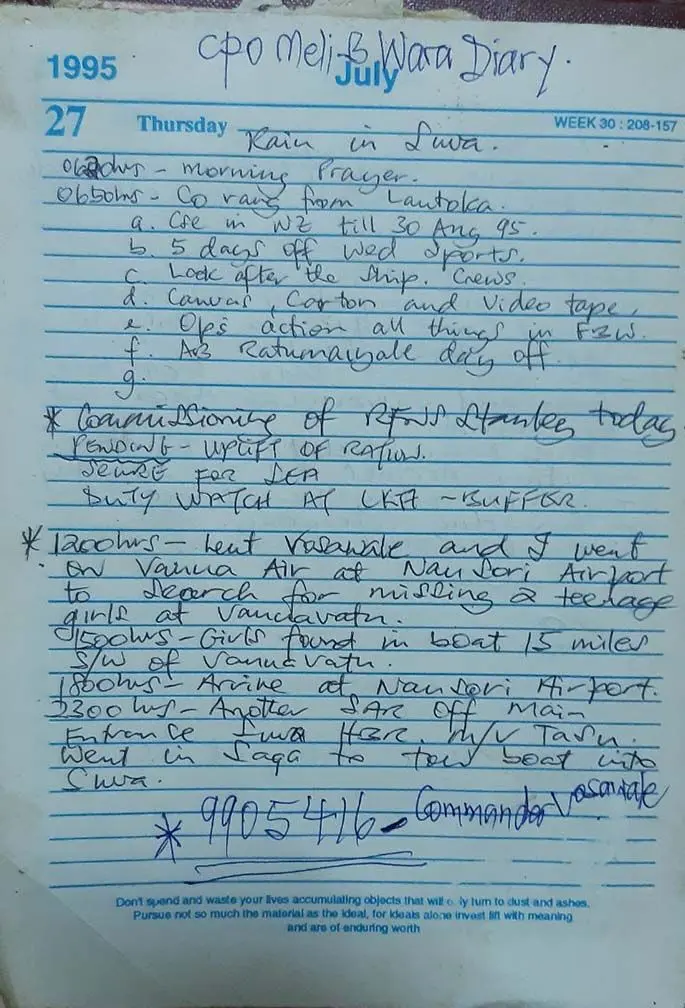 CPO Meli B Wara Diary.
1995 July
27 Thursday WEEK 30 : 208-157
Rain in Suva.
hrs - morning Prayer.
0650hrs - Co rang from Lautoka.
a. Cse in NZ till 30 Aug 95.
b. 5 days off Wed Sports.
c. Look after the Ship. Crews.
d. Canvas, Carton and Video tape.
e. Ops action all things in FBW.
f. AB Ratumaiyale day off.
g.
* Commissioning of RFNS Stanley today
PENDING - UPLIFT OF RATION.
SECURE FOR SEA
DUTY WATCH AT LKA - BUFFER.
* 1200hrs - Lent Vosawale and I went
on Vanua Air at Nausori Airport
to search for missing 2 teenage
girls at Vanuavatu.
1500hrs - Girls found in boat 15 miles
S/W of Vanuavatu.
1800hrs - Arrive at Nausori Airport.
2300hrs - Another SAR Off Main
Entrance Suva HBR. M/V Tasu.
Went in Saga to tow boat into
Suva.
* 9905416 - Commander Vosawale
Don't spend and waste your lives accumulating objects that will only turn to dust and ashes.
Pursue not so much the material as the ideal, for ideals alone invest lift with meaning
and are of enduring worth